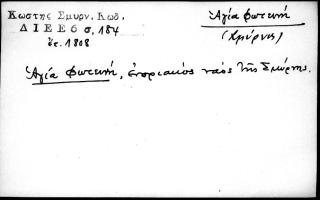 Κωστης Σμυρν. Κωδ.
ΔΙΕΕ6 σ,184
ἔτ. 1808
Ἁγία Φωτεινή
(Σμύρνης)
Ἁγία Φωτεινή, ἐνοριακὸς ναὸς τῆς Σμύρνης.